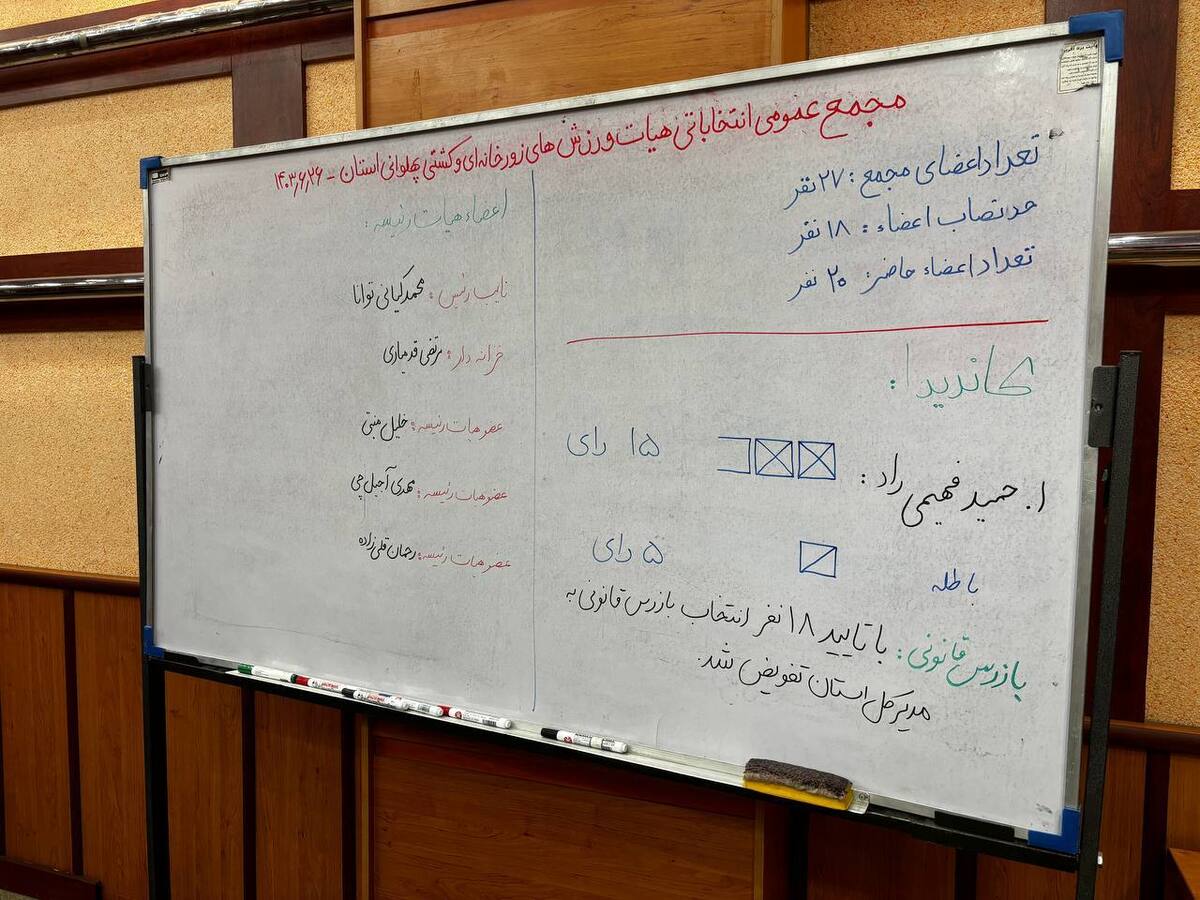 مجمع عمومی انتخاباتی هیات ورزش های زورخانه ای و کشتی پهلوانی استان - ۱۴۰۳٫۶٫۲۶
تعداد اعضای مجمع : ۲۷ نفر
حد نصاب اعضاء : ۱۸ نفر
تعداد اعضاء حاضر : ۲۰ نفر
کاندیدا :
۱. حمید فهیمی راد : ۱۵ رای
باطله ۵ رای
بازرس قانونی : با تایید ۱۸ نفر انتخاب بازرس قانونی به
مدیرکل استان تفویض شد.
اعضاء هیات رئیسه :
نایب رئیس : محمد کیانی توانا
خزانه دار : مرتضی قدمیاری
عضو هیات رئیسه : خلیل
عضو هیات رئیسه : مهدی آجیل چی
عضو هیات رئیسه : رحمان قلی زاده